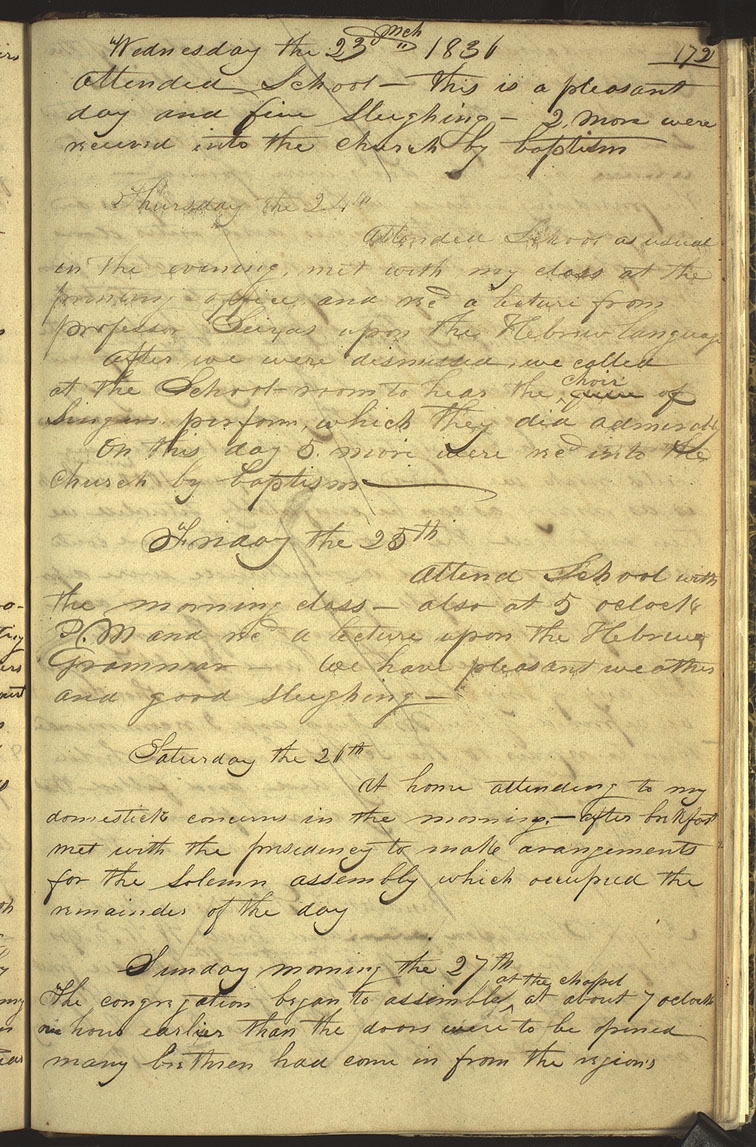 Wednesday the 23d Mch 1836 172
attended School— this is a pleasant
day and fine sleighing— 2 more were
received into the church by baptism
Thursday the 24th
attended School as usual
in the evening, met with my class at the
printing office and recd a lecture from
professor Seixas upon the Hebrew language
after we were dismissed, we called
at the School-room to hear the choir of
Singers perform, which they did admirably
On this day 5. more were recd into the
church by baptism—
Friday the 25th
attend School with
the morning class— also at 5 oclock
P.M and recd a lecture upon the Hebrew
Grammar— We have pleasant weather
and good sleighing—
Saturday the 26th
At home attending to my
domestick concerns in the morning.— after brekfast
met with the presidency to make arangements
for the solemn assembly which occupied the
remainder of the day
Sunday morning the 27th
The congregation began to assemble at the chapel at about 7 oclock
one hour earlier than the doors were to be opened
many brethren had come in from the region's